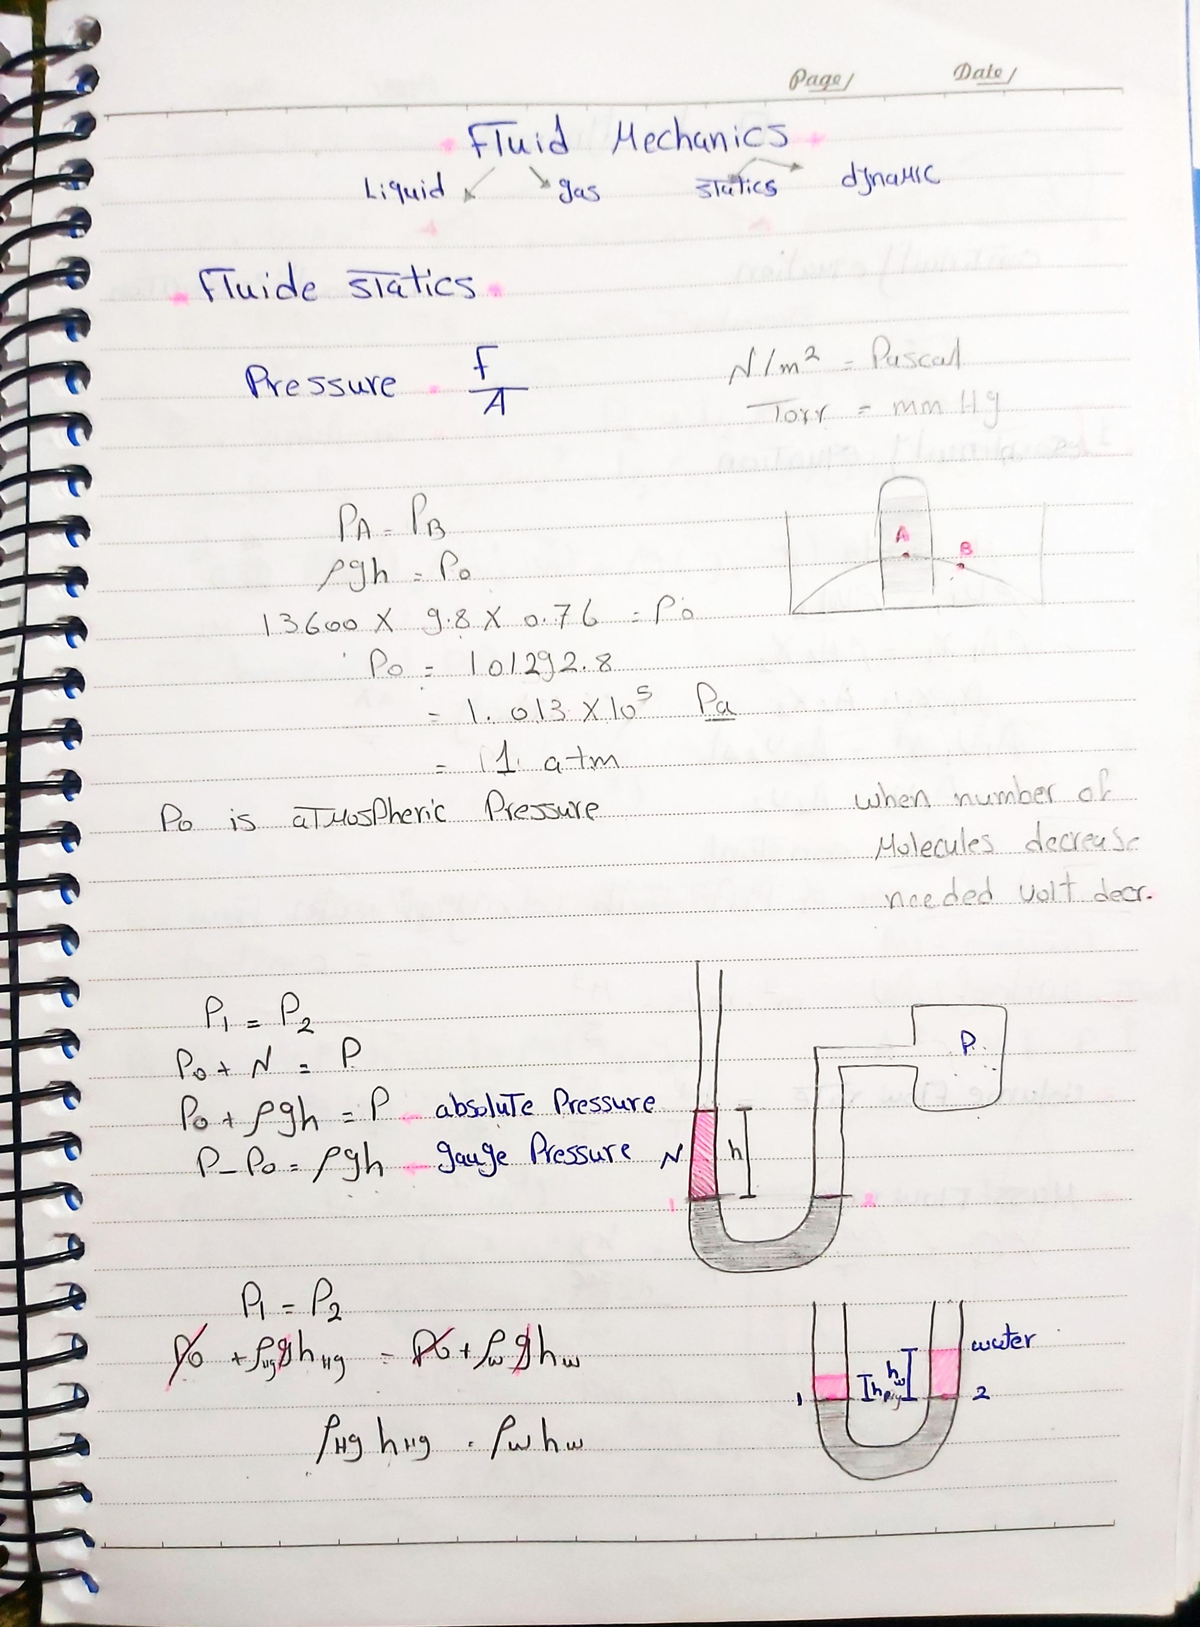 Page/ Date/
Fluid Mechanics
Liquid gas statics dynamic
Fluide statics
Pressure = F/A
N/m² = Pascal
Torr = mm Hg
PA = PB
A B
ρgh = Po
13600 X 9.8 X 0.76 = Po
Po = 101292.8
= 1.013 X 10⁵ Pa
= 1 atm
Po is atmospheric Pressure
when number of
Molecules decrease
needed volt decr.
P1 = P2
Po + N = P
P
Po + ρgh = P absolute Pressure
P - Po = ρgh gauge Pressure
N h
1 2
P1 = P2
Po + ρHg g hHg = Po + ρw g hw
water
1 hHg hw 2
ρHg hHg = ρw hw